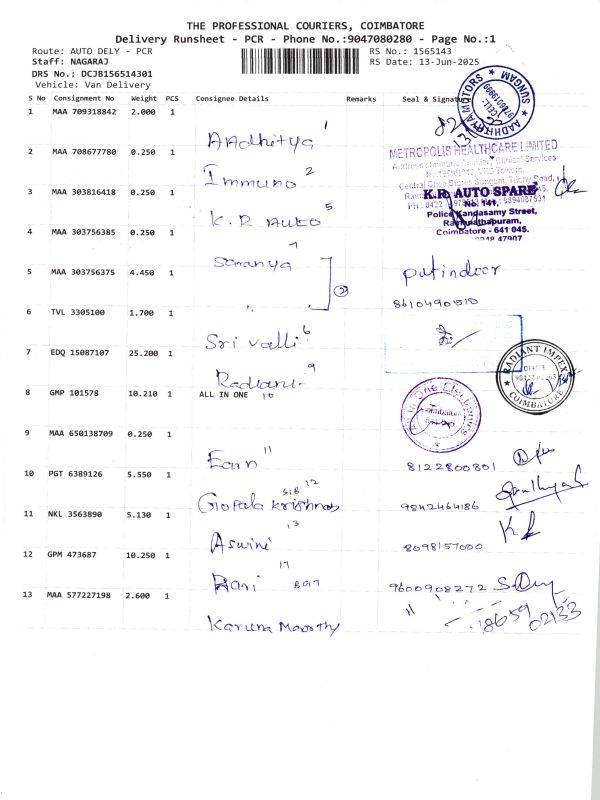 THE PROFESSIONAL COURIERS, COIMBATORE
Delivery Runsheet - PCR - Phone No.:9047080280 - Page No.:1
Route: AUTO DELY - PCR
RS No.: 1565143
Staff: NAGARAJ
RS Date: 13-Jun-2025
DRS No.: DCJB156514301
Vehicle: Van Delivery
S No Consignment No Weight PCS Consignee Details Remarks Seal & Signature
1 MAA 709318842 2.000 1
AADHITYA MOTORS SUNGAM
Aadhitya 1
2 MAA 708677780 0.250 1
METROPOLIS HEALTHCARE LIMITED
Immuno 2
3 MAA 303816418 0.250 1
K.R. AUTO SPARE
No: 141,
Police Kandasamy Street,
Ramanathapuram,
Coimbatore - 641 045.
K.R AUTO 5
4 MAA 303756385 0.250 1
Saranya 7
5 MAA 303756375 4.450 1
2
8610490510
6 TVL 3305100 1.700 1
Sri valli 6
7 EDQ 15087107 25.200 1
RADIANT IMPEX
OFFICE
COIMBATORE
Radiant 9
8 GMP 101578 10.210 1 ALL IN ONE 10
All In One Electronics
Coimbatore
9 MAA 650138709 0.250 1
11
8122800801
10 PGT 6389126 5.550 1
12
Gopala krishnan
9842464186
11 NKL 3563890 5.130 1
13
Aswini
8098157000
12 GPM 473687 10.250 1
17
9600908272
13 MAA 577227198 2.600 1
18659
02133
Karuna Moorthy